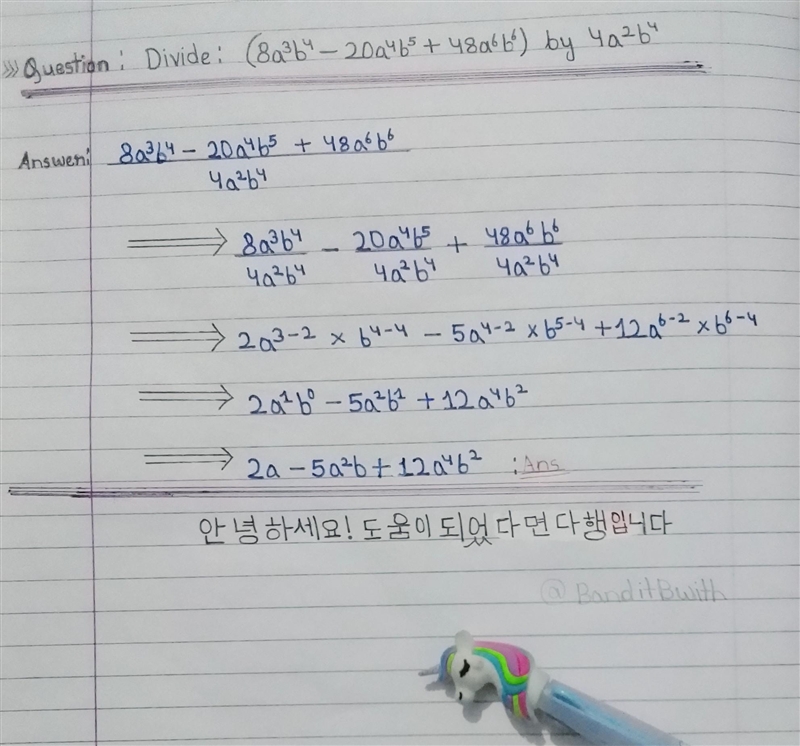 >>> Question: Divide: (8a³b⁴ − 20a⁴b⁵ + 48a⁶b⁶) by 4a²b⁴
Answer: 8a³b⁴ − 20a⁴b⁵ + 48a⁶b⁶
4a²b⁴
⟹ 8a³b⁴/4a²b⁴ − 20a⁴b⁵/4a²b⁴ + 48a⁶b⁶/4a²b⁴
⟹ 2a³⁻² × b⁴⁻⁴ − 5a⁴⁻² × b⁵⁻⁴ + 12a⁶⁻² × b⁶⁻⁴
⟹ 2a¹b⁰ − 5a²b¹ + 12a⁴b²
⟹ 2a − 5a²b + 12a⁴b² : Ans
안녕하세요! 도움이 되었다면 다행입니다
@BanditBwith